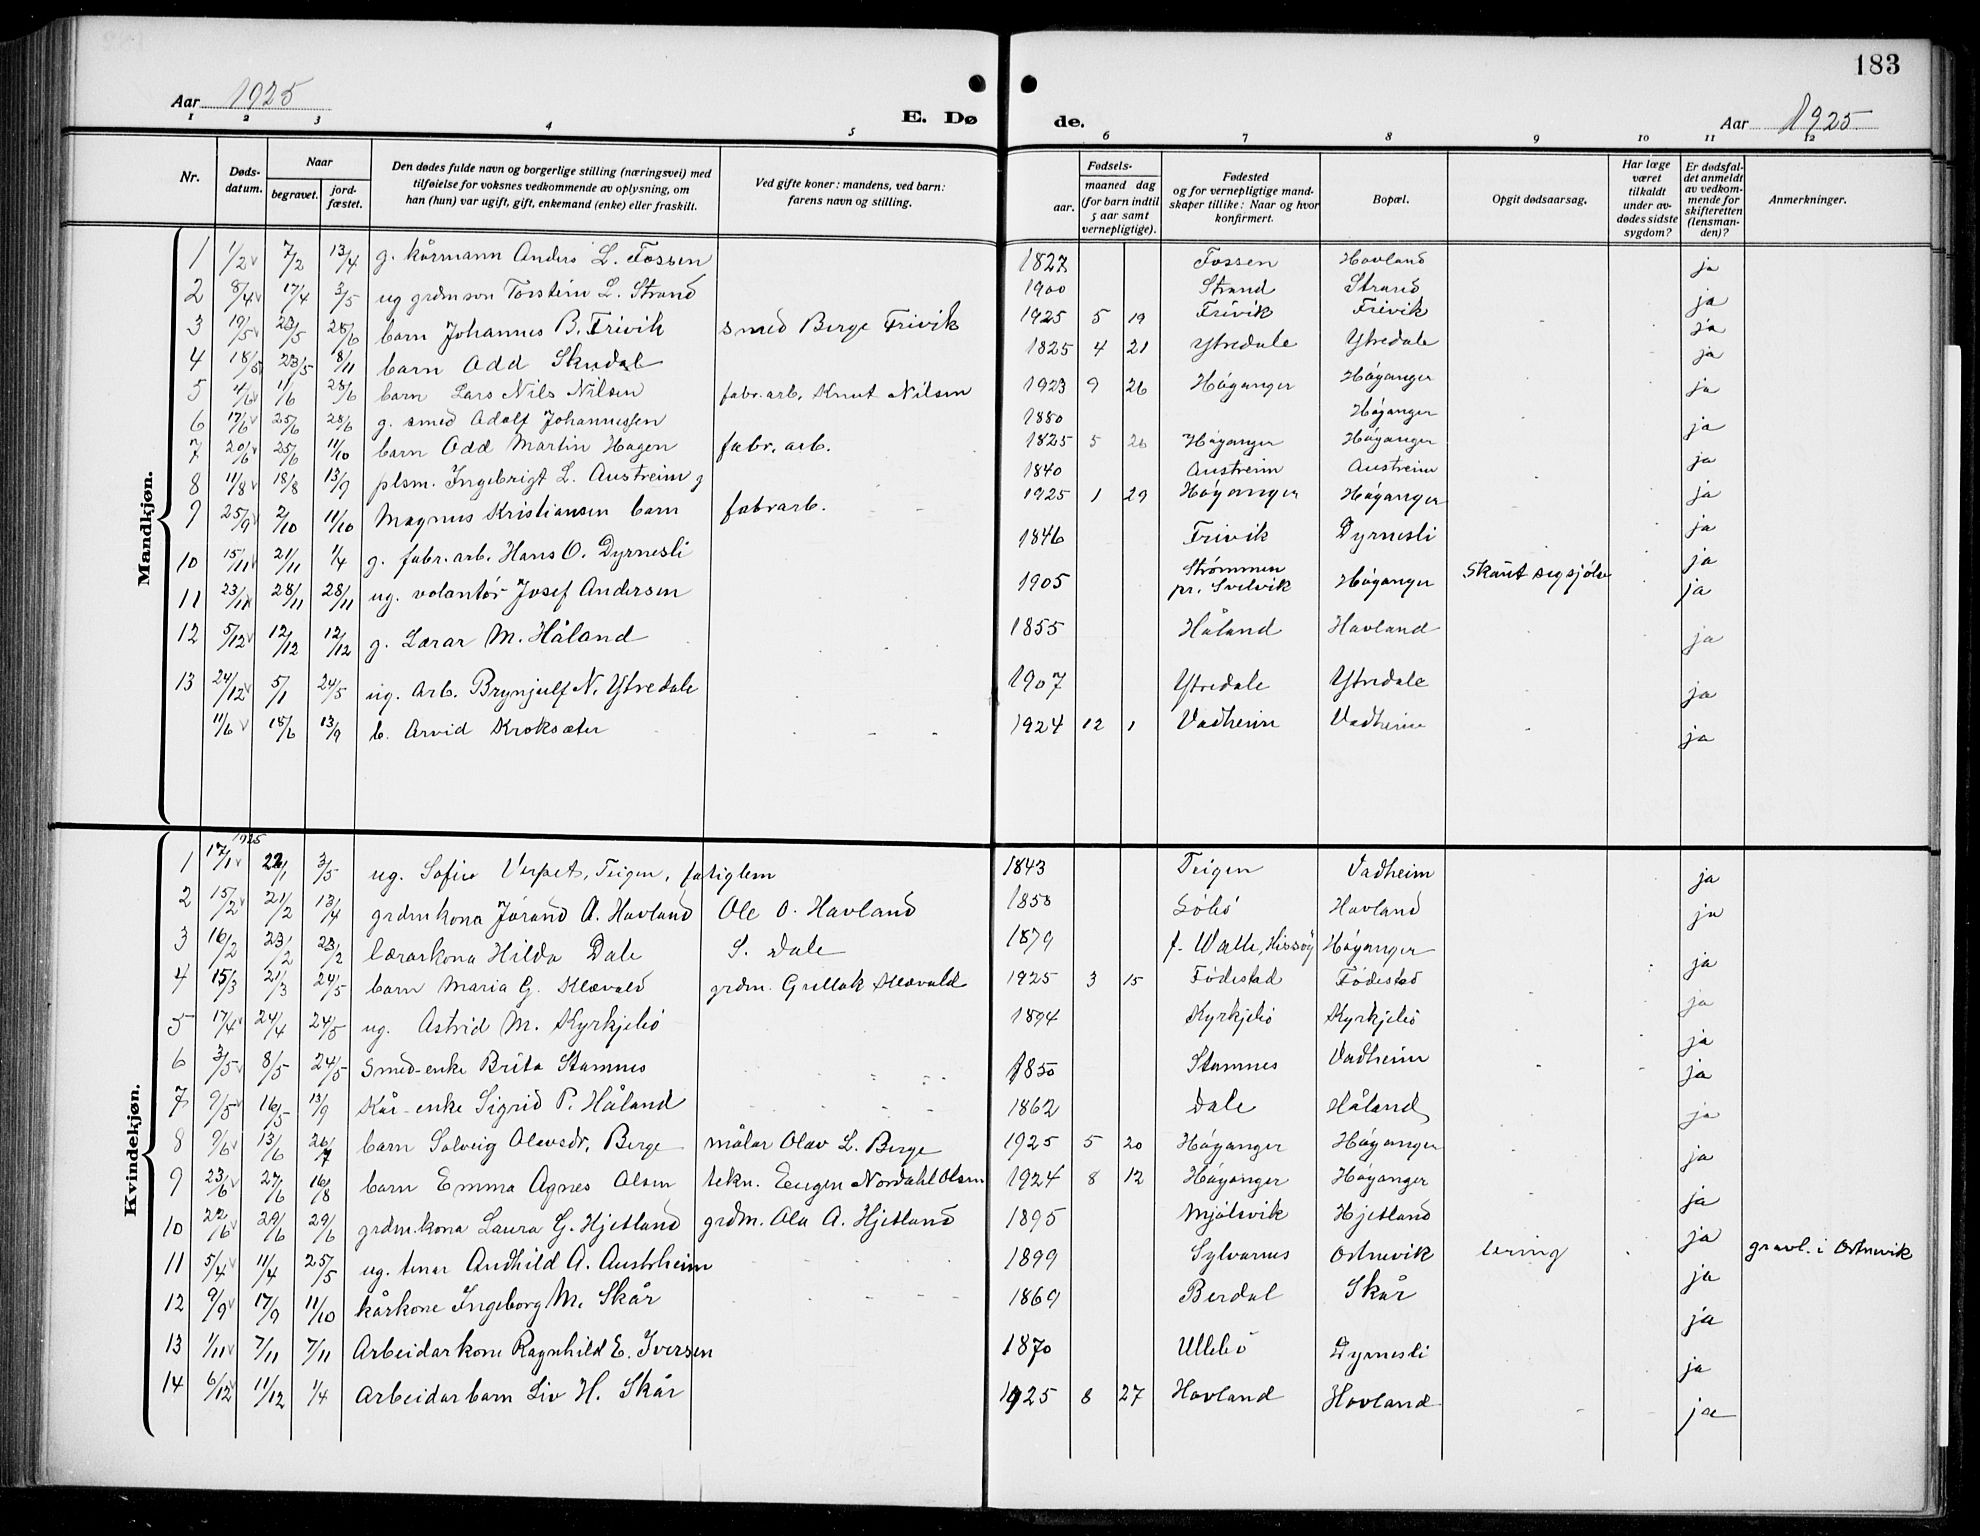 183
Aar 1925
E. Dø de.
Aar 1925
1 2 3 4 5 6 7 8 9 10 11 12
Nr.
Døds-datum.
Naar
begravet.
jord-fæstet.
Den dødes fulde navn og borgerlige stilling (næringsvei) med
tilføielse for voksnes vedkommende av oplysning, om
han (hun) var ugift, gift, enkemand (enke) eller fraskilt.
Ved gifte koner: mandens, ved barn:
farens navn og stilling.
Fødsels-
aar.
maaned dag
(for barn indtil
5 aar samt
vernepligtige).
Fødested
og for vernepligtige mand-
skaper tillike: Naar og hvor
konfirmert.
Bopæl.
Opgit dødsaarsag.
Har læge
været
tilkaldt
under av-
dødes sidste
sygdom?
Er dødsfal-
det anmeldt
av vedkom-
mende for
skifteretten
(lensman-
den)?
Anmerkninger.
Mandkjøn.
1 1/2 7/2 13/4 g. kårmann Anders L. Fossen 1827 Fossen Hovland ja
2 8/4 17/4 3/5 ug grdmson Torstein L. Strand 1900 Strand Strand ja
3 19/5 23/5 28/6 barn Johannes B. Frivik smed Berge Frivik 1925 5 19 Frivik Frivik ja
4 18/5 23/5 8/11 barn Odd Skudal 1825 4 21 Ytredale Ytredale ja
5 4/6 11/6 28/6 barn Lars Nils Nilsen fabr. arb. Knut Nilsen 1923 9 26 Höganger Höganger ja
6 17/6 25/6 28/6 g. smed Adolf Johannessen 1880 Höyanger ja
7 20/6 25/6 11/10 barn Odd Martin Hagen fabr. arb. 1825 5 26 Höyanger Höyanger ja
8 11/8 18/8 13/9 plsm. Ingebrigt L. Austreim g 1840 Austreim Austreim ja
9 25/9 2/10 11/10 Magnus Kristiansen barn fabrarb. 1925 1 29 Höyanger Höyanger ja
10 15/11 21/11 1/4 g. fabr. arb. Hans O. Dyrnesli 1846 Frivik Dyrnesli ja
11 23/11 28/11 28/11 ug. volantör Josef Andersen 1905 Strømmen pr. Svelvik Höyanger Skaut seg sjölv ja
12 5/12 12/12 12/12 g. Lærar M. Håland 1855 Håland Havland ja
13 24/12 5/1 24/5 ug. Arb. Brynjulf N. Ytredale 1907 Ytredale Ytredale ja
11/6 18/6 13/9 b. Arvid Kroksæter 1924 12 1 Vadheim Vadheim ja
Kvindekjøn.
1925
1 17/1 22/1 3/5 ug. Sofie Verpet, Teigen, fatiglem 1843 Teigen Vadheim ja
2 15/2 21/2 13/4 grdmkona Jórand A. Havland Ole O. Havland 1858 Hovland ja
3 16/2 23/2 23/2 lærarkona Hilda Dale S. Dale 1879 f. Walle, Hissøy Höyanger ja
4 15/3 21/3 24/5 barn Maria G. Klævold grdm. Grellak Klævold 1925 3 15 Födestad Födestad ja
5 17/4 24/4 24/5 ug. Astrid M. Kyrkjebö 1894 Kyrkjebö Kyrkjebö ja
6 3/5 8/5 24/5 Smed-enke Brita Stamnes 1850 Stamnes Vadheim ja
7 9/5 16/5 13/9 Kår-enke Sigrid P. Håland 1862 Dale Håland ja
8 9/6 13/6 26/7 barn Solveig Olavsdr. Berge målar Olav L. Berge 1925 5 20 Höyanger Höyanger ja
9 23/6 27/6 16/8 barn Emma Agnes Olsen tekn. Eugen Nordahl Olsen 1924 8 12 Höyanger Höyanger ja
10 22/6 29/6 29/6 grdm.kona Laura G. Hjetland grdm. Ola A. Hjetland 1895 Mjölsvik Hjetland ja
11 5/4 11/4 25/5 ug. tenar Andhild A. Austrheim 1899 Sylvarnes Ortnevik tering ja gravl. i Ortnevik
12 9/9 17/9 11/10 kårkone Ingeborg M. Skår 1869 Berdal Skår ja
13 1/11 7/11 7/11 Arbeidarkone Ragnhild E. Iversen 1870 Ullebö Dyrnesli ja
14 6/12 11/12 1/4 Arbeidarbarn Liv H. Skår 1925 8 27 Hovland Hovland ja